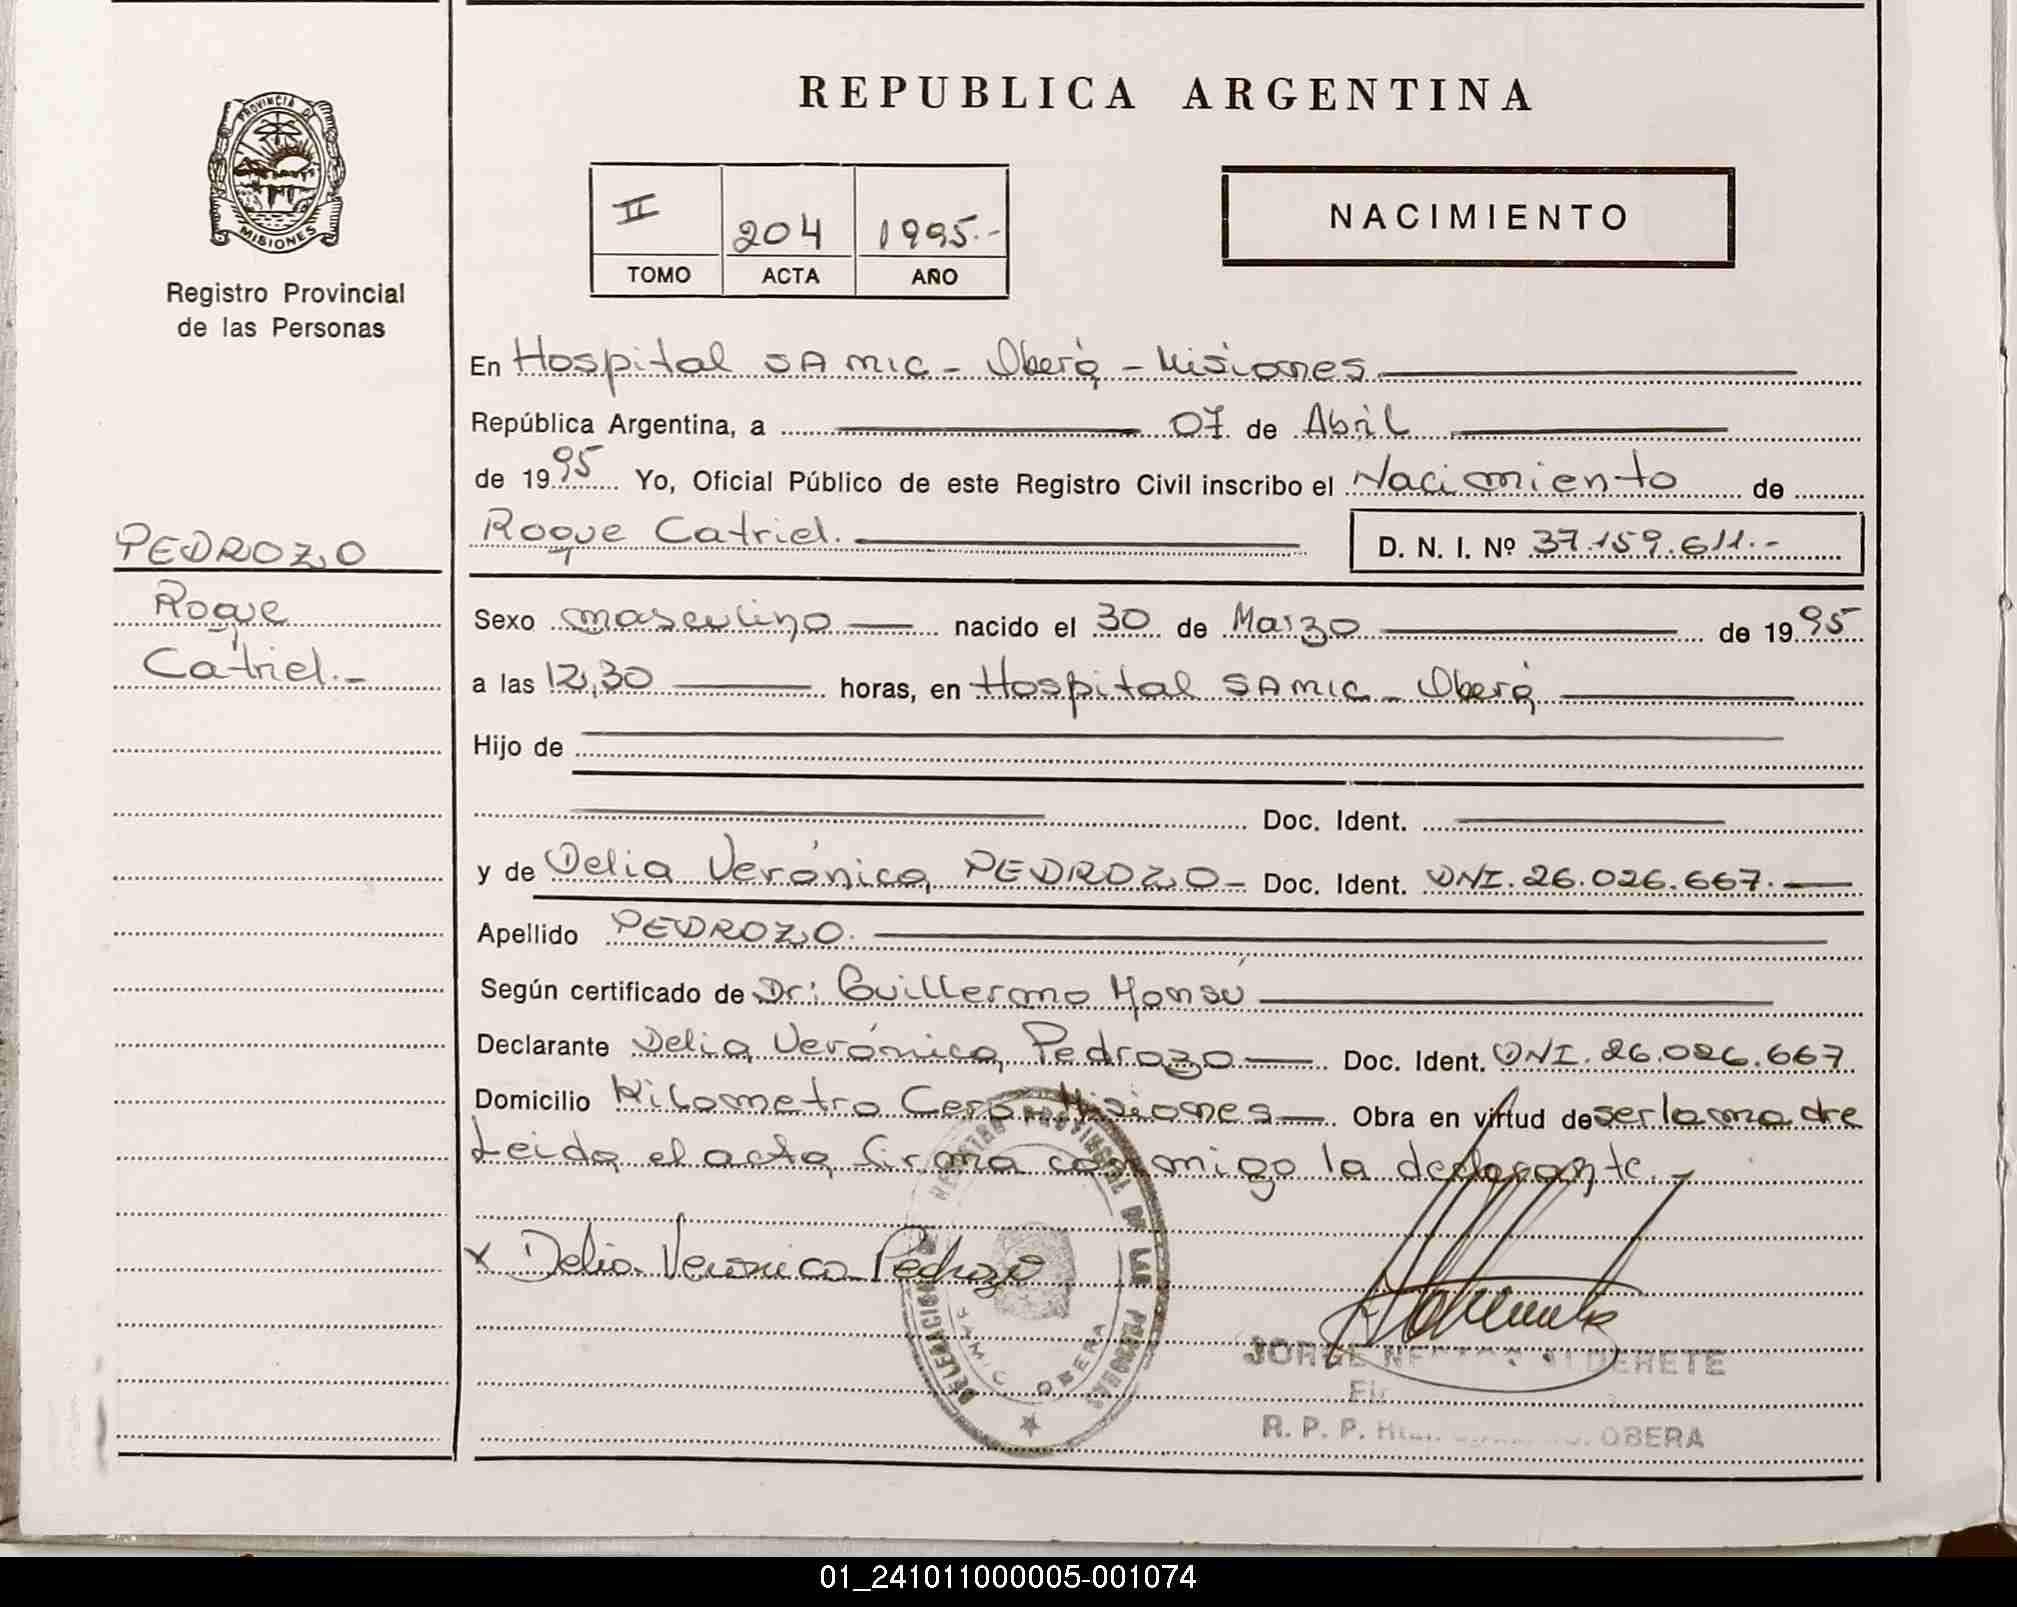 REPUBLICA ARGENTINA
PROVINCIA DE
MISIONES
Registro Provincial
de las Personas
II 204 1995.-
TOMO ACTA AÑO
NACIMIENTO
En Hospital SAMIC - Oberá - Misiones
República Argentina, a 07 de Abril
de 1995 Yo, Oficial Público de este Registro Civil inscribo el Nacimiento de
Roque Catriel. D. N. I. Nº 37.159.611.-
PEDROZO
Roque
Catriel.-
Sexo masculino nacido el 30 de Marzo de 1995
a las 12,30 horas, en Hospital SAMIC - Oberá
Hijo de
Doc. Ident.
y de Delia Verónica PEDROZO - Doc. Ident. DNI. 26.026.667.-
Apellido PEDROZO.
Según certificado de Dr: Guillermo Monsú
Declarante Delia Verónica Pedrozo Doc. Ident. DNI. 26.026.667
Domicilio Kilometro Cero - Misiones Obra en virtud de ser la madre
Leida el acta firma conmigo la declarante.-
x Delia Veronica Pedrozo
DELEGACION REGISTRO PROVINCIAL DE LAS PERSONAS
SAMIC OBERA
JORGE NESTOR ALDERETE
R. P. P. OBERA
01_241011000005-001074